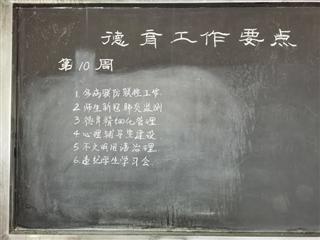 德育工作要点
第10周
1.多病联防联控工作
2.师生新冠肺炎监测
3.德育精细化管理
4.心理辅导室建设
5.不文明用语治理
6.违纪学生学习会